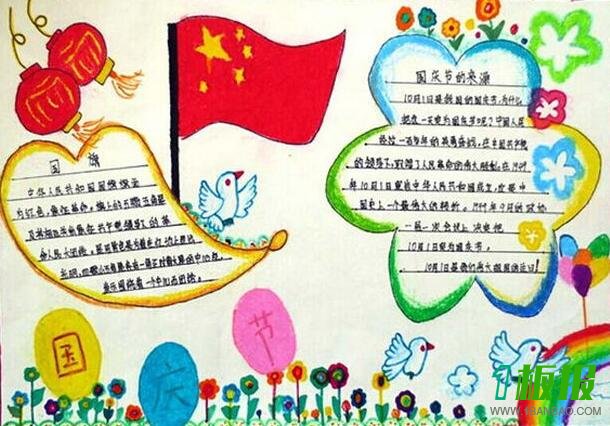 国旗
中华人民共和国国旗旗面
为红色,象征革命。旗上的五颗五角星
及其相互关系象征共产党领导下的革
命人民大团结。星用黄色是为着在红地上显出
光明,四颗小五角星各有一尖正对着大星的中心点,
表示围绕着一个中心而团结。
国庆节的来源
10月1日是我国的国庆节,为什么
把这一天定为国庆节呢?中国人民
经过一百多年的英勇奋战,在中国共产党
的领导下,取得了人民革命的伟大胜利。在1949
年10月1日宣告中华人民共和国成立,这是中
国史上一个最伟大的转折。1949年9月的政协
一届一次会议上决定把
10月1日定为国庆节。
10月1日是我们伟大祖国的生日!
国庆节
1板报
WWW.1BANBAO.COM